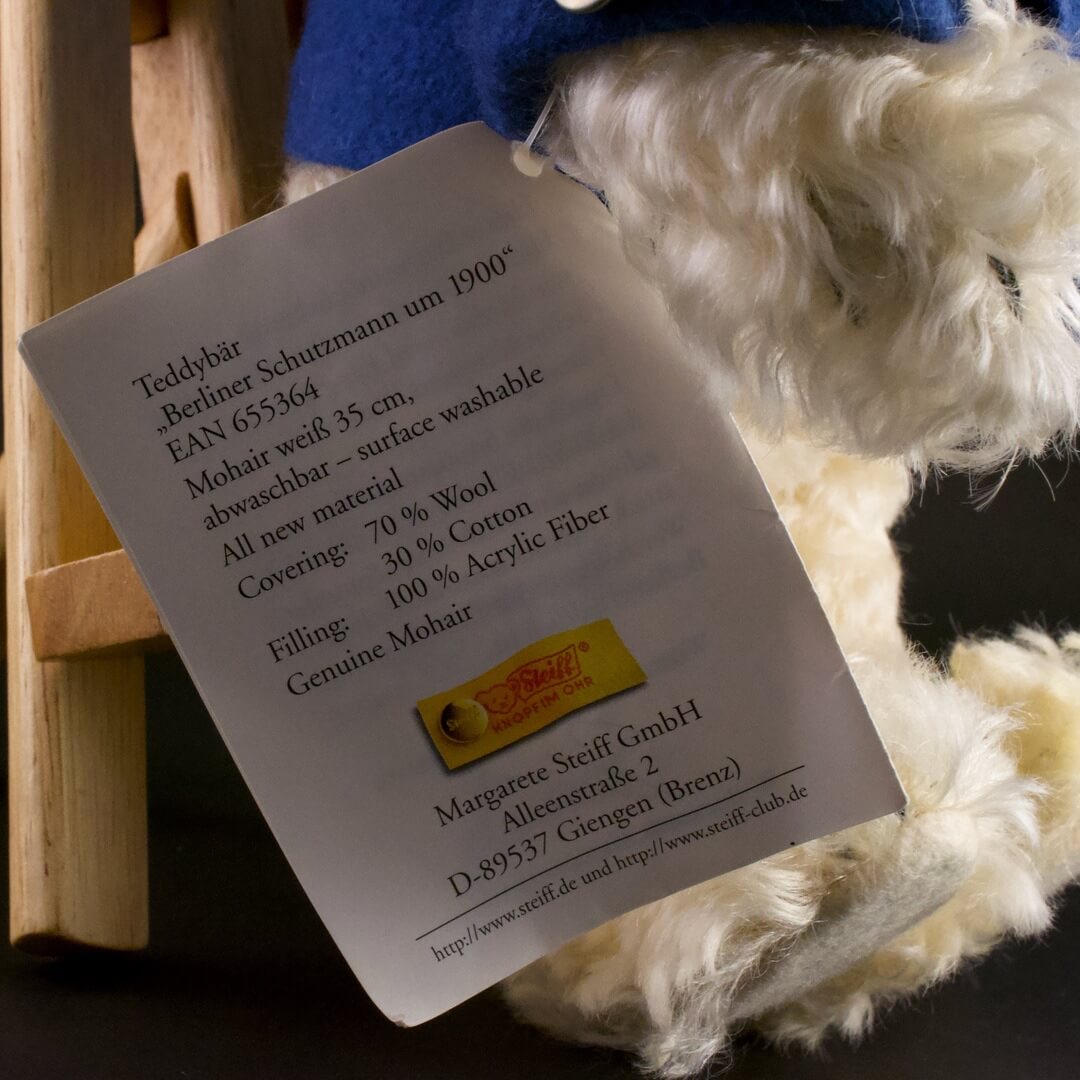 Teddybär
„Berliner Schutzmann um 1900“
EAN 655364
Mohair weiß 35 cm,
abwaschbar – surface washable
All new material
Covering: 70 % Wool
30 % Cotton
Filling: 100 % Acrylic Fiber
Genuine Mohair
Steiff®
KNOPF IM OHR
Margarete Steiff GmbH
Alleenstraße 2
D-89537 Giengen (Brenz)
http://www.steiff.de und http://www.steiff-club.de